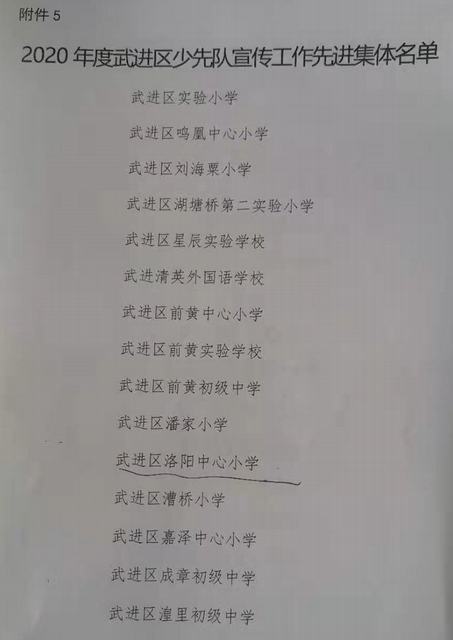 附件 5
2020 年度武进区少先队宣传工作先进集体名单
武进区实验小学
武进区鸣凰中心小学
武进区刘海粟小学
武进区湖塘桥第二实验小学
武进区星辰实验学校
武进清英外国语学校
武进区前黄中心小学
武进区前黄实验学校
武进区前黄初级中学
武进区潘家小学
武进区洛阳中心小学
武进区漕桥小学
武进区嘉泽中心小学
武进区成章初级中学
武进区湟里初级中学